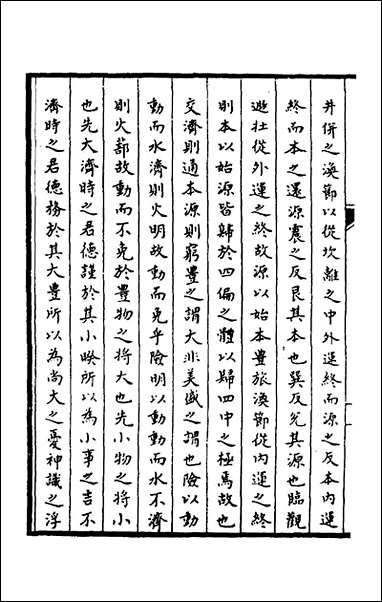 井併之渙節以從坎離之中外運終而源之反本內運
終而本之還源震之反艮其本也巽反兌其源也臨觀
遯壯從外運之終故源以始本豐旅渙節從內運之終
則本以始源皆歸於四偏之體以歸四中之極焉故也
交濟則通本源則窮豐之謂大非美盛之謂也險以動
動而水濟則火明故動而免乎險明以動動而水不濟
則火蔀故動而不免於豐物之將大也先小物之將小
也先大濟時之君德謹於其小睽所以為小事之吉不
濟時之君德務於其大豐所以為尚大之憂神識之浮